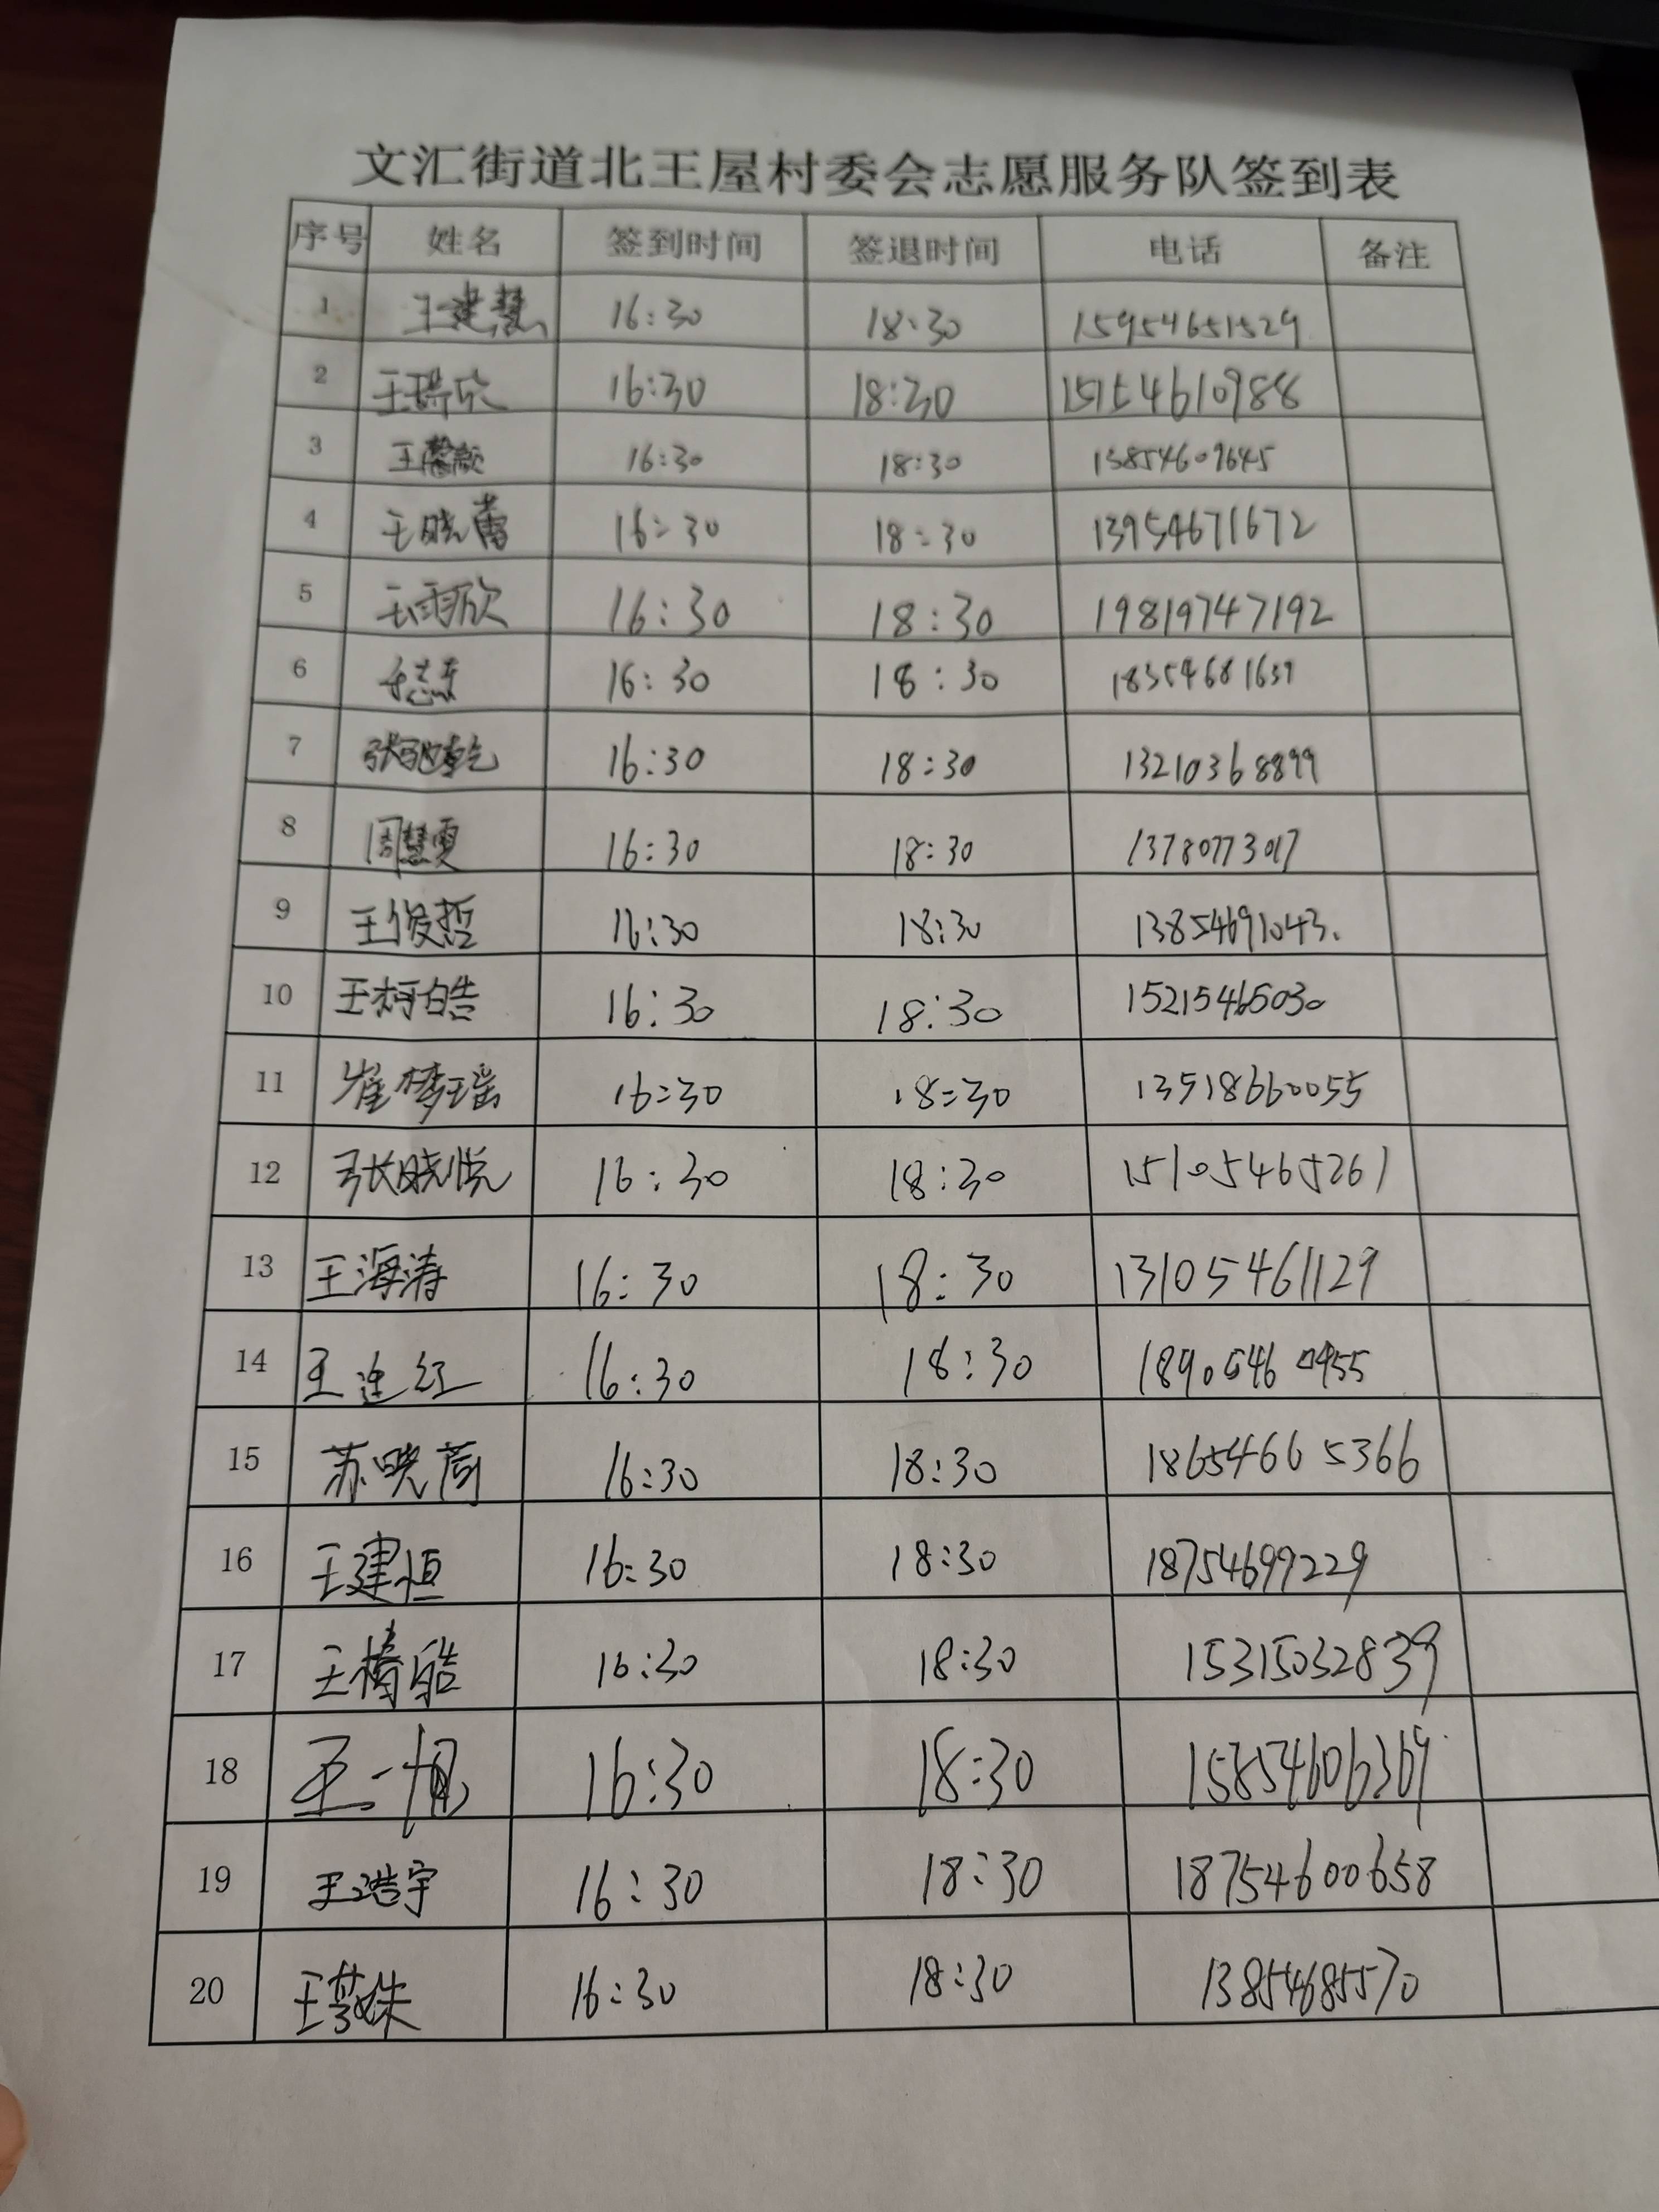 文汇街道北王屋村委会志愿服务队签到表
序号 姓名 签到时间 签退时间 电话 备注
1 王建慧 16:30 18:30 15954651529
2 王瑞欣 16:30 18:30 15154610988
3 王馨颜 16:30 18:30 13854609645
4 王晓蕾 16:30 18:30 13954671672
5 王雨欣 16:30 18:30 19819747192
6 16:30 18:30 18354681639
7 张弛乾 16:30 18:30 13210368899
8 周慧雯 16:30 18:30 13780773017
9 王俊哲 16:30 18:30 13854691043.
10 王柯皓 16:30 18:30 15215465030
11 崔梦瑶 16:30 18:30 13518660055
12 张晓悦 16:30 18:30 15105465261
13 王海涛 16:30 18:30 13105461129
14 王连红 16:30 18:30 18905460955
15 苏晓茼 16:30 18:30 18654665366
16 王建恒 16:30 18:30 18754699229
17 王椿皓 16:30 18:30 15315032839
18 王一帆 16:30 18:30 15854606369
19 王浩宇 16:30 18:30 18754600658
20 16:30 18:30 13854685570